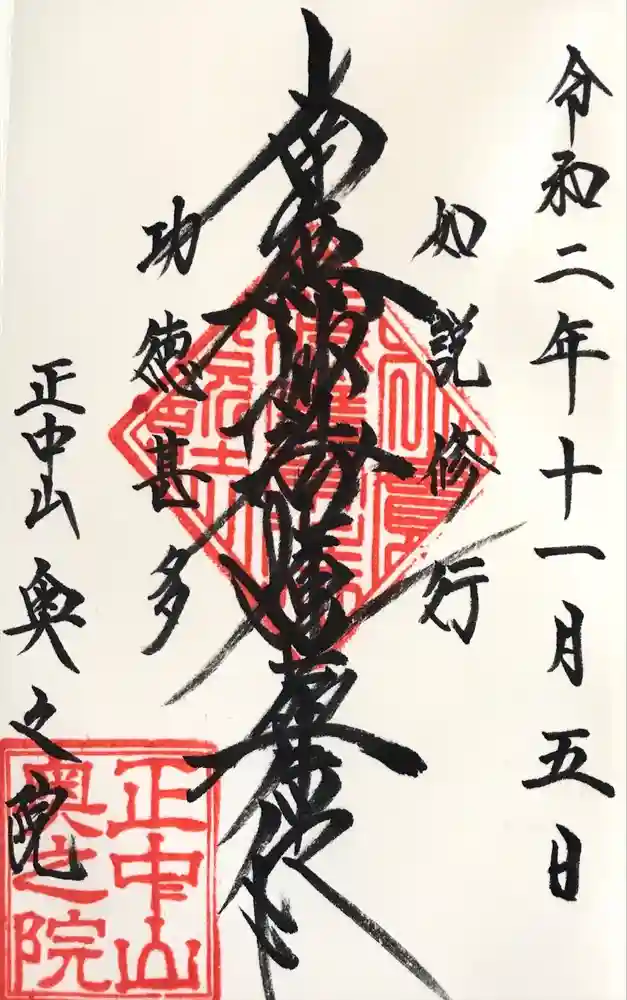 令和二年十一月五日
如説修行
南無妙法蓮華経
功徳甚多
正中山奥之院
正中山
奥之院